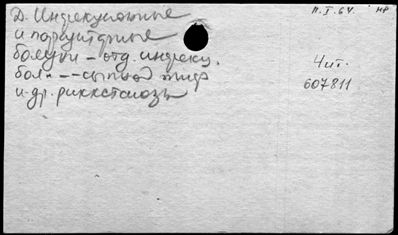 Д. Инфекционные
и паразитарные
болезни – отд. инфекц.
бол. – – сыпной тиф
и др. риккетсиозы
11.I.64. нр
Чит.
607811